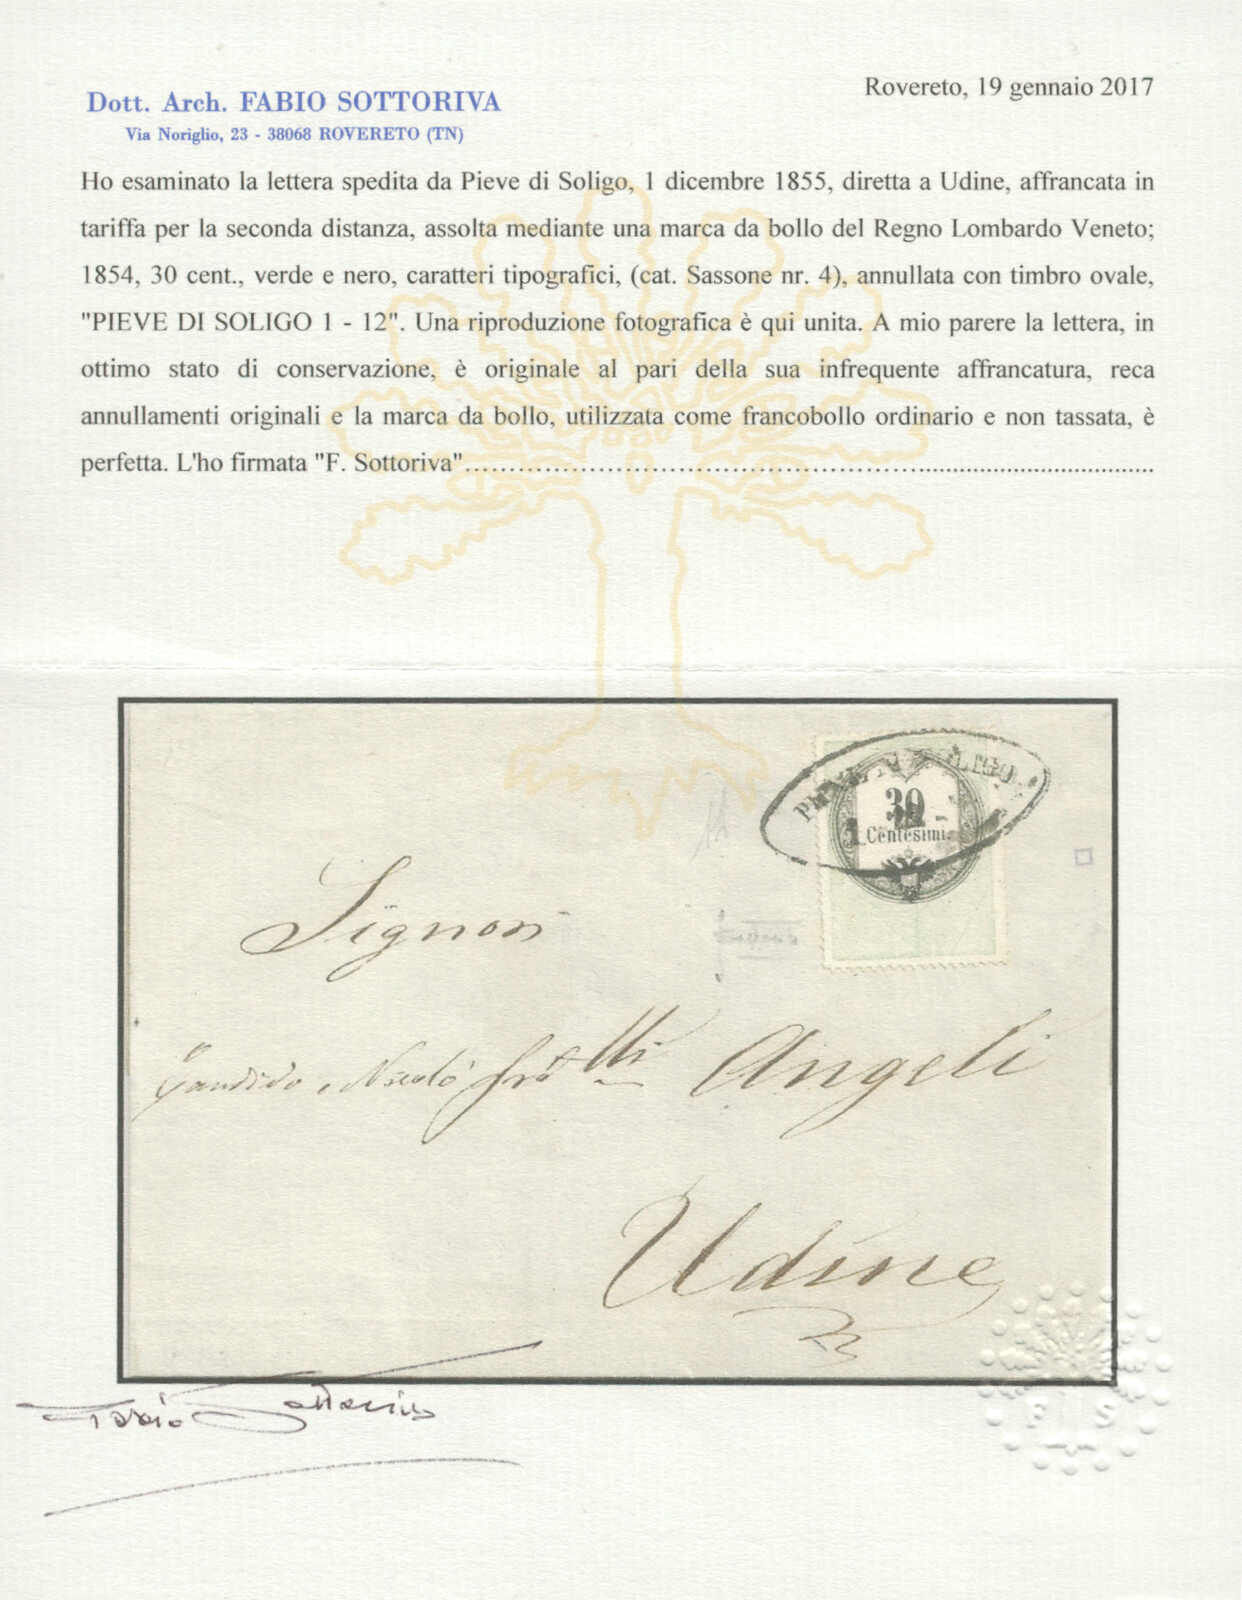 Rovereto, 19 gennaio 2017
Dott. Arch. FABIO SOTTORIVA
Via Noriglio, 23 - 38068 ROVERETO (TN)
Ho esaminato la lettera spedita da Pieve di Soligo, 1 dicembre 1855, diretta a Udine, affrancata in
tariffa per la seconda distanza, assolta mediante una marca da bollo del Regno Lombardo Veneto;
1854, 30 cent., verde e nero, caratteri tipografici, (cat. Sassone nr. 4), annullata con timbro ovale,
"PIEVE DI SOLIGO 1 - 12". Una riproduzione fotografica è qui unita. A mio parere la lettera, in
ottimo stato di conservazione, è originale al pari della sua infrequente affrancatura, reca
annullamenti originali e la marca da bollo, utilizzata come francobollo ordinario e non tassata, è
perfetta. L'ho firmata "F. Sottoriva"................................................................................
30
Centesimi.
Signori
Angeli
Udine
Fabio Sottoriva
F S